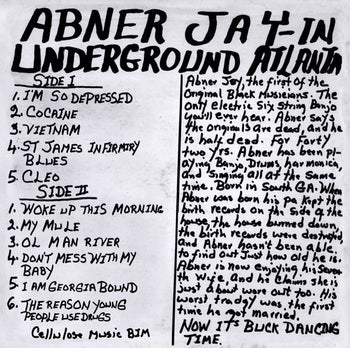 ABNER JAY-IN
UNDERGROUND ATLANTA
SIDE I
1. I'M SO DEPRESSED
2. COCAINE
3. VIETNAM
4. ST JAMES INFIRMIRY
BLUES
5. CLEO
SIDE II
1. WOKE UP THIS MORNING
2. MY MULE
3. OL MAN RIVER
4. DON'T MESS WITH MY
BABY
5. I AM GEORGIA BOUND
6. THE REASON YOUNG
PEOPLE USE DRUGS
Cellulose Music BIM
Abner Jay, the first of the
Original Black Musicians. The
Only electric Six String Banjo
you'll ever hear. Abner Says
the originals are dead, and he
is half dead. For Forty
two yrs. Abner has been pl-
aying Banjo, Drums, harmonica,
and Singing all at the Same
time. Born in South GA. When
Abner was born his pa Kept the
birth records on the Side of the
house, the house burned down,
the birth records were destroyed,
and Abner hasn't been able
to find out Just how old he is.
Abner is now enjoying his Seven-
th Wife, and he Claims She is
Just about ware out too. His
worst tradgy was the first
time he got married.
NOW IT'S BUCK DANCING
TIME.